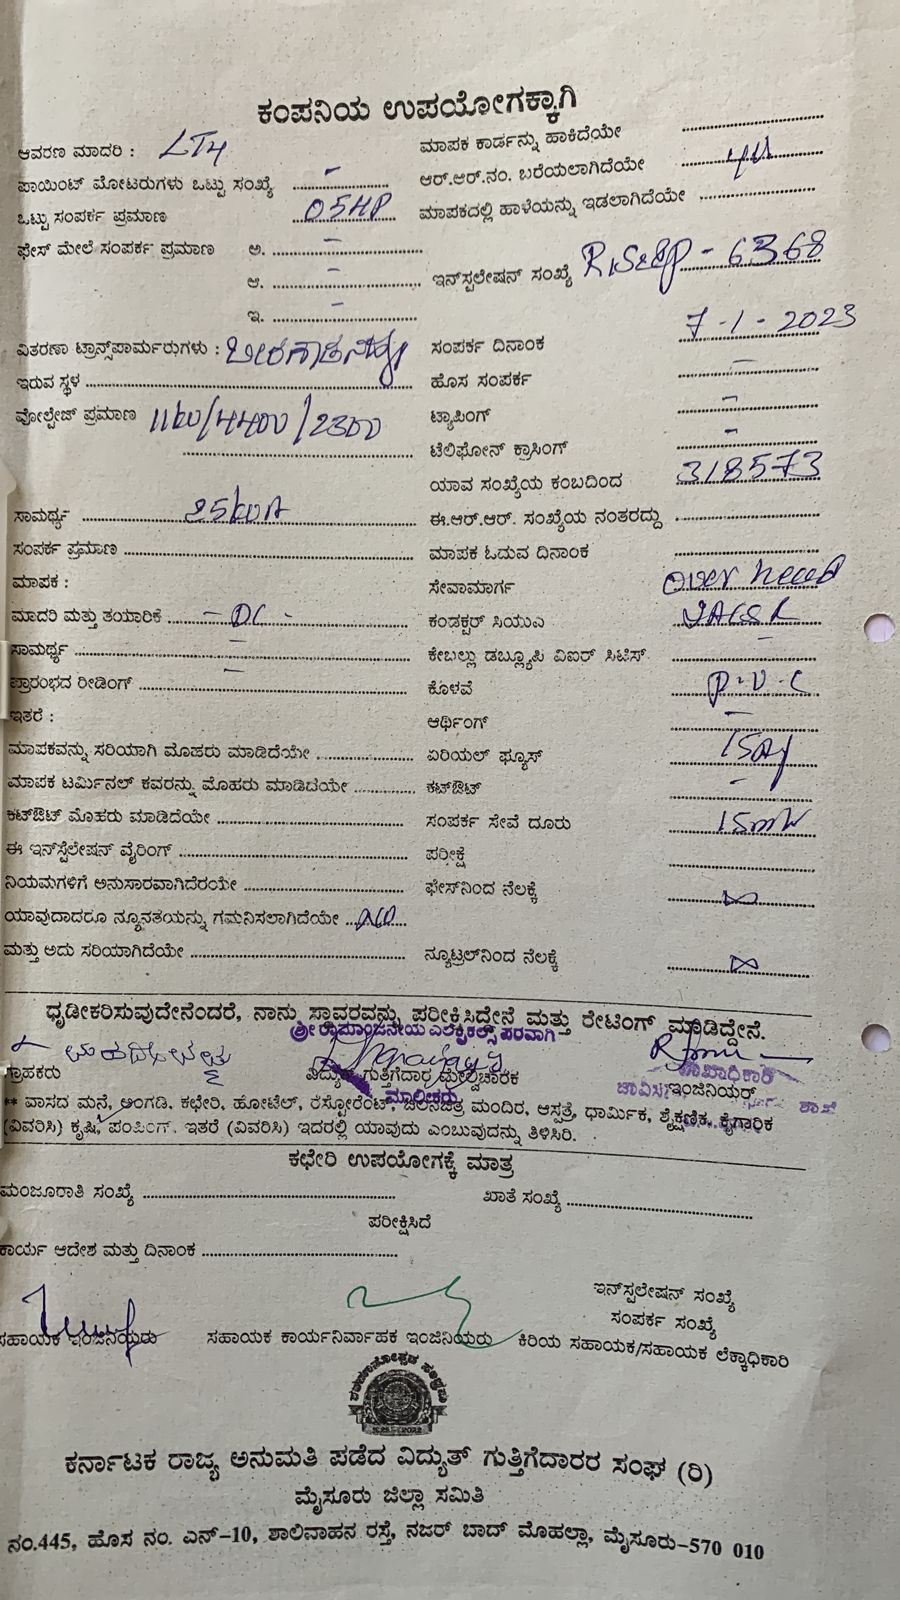 ಕಂಪನಿಯ ಉಪಯೋಗಕ್ಕಾಗಿ
ಆವರಣ ಮಾದರಿ : LT4
ಮಾಪಕ ಕಾರ್ಡನ್ನು ಹಾಕಿದೆಯೇ
ಪಾಯಿಂಟ್ ಮೋಟರುಗಳು ಒಟ್ಟು ಸಂಖ್ಯೆ –
ಆರ್.ಆರ್.ನಂ. ಬರೆಯಲಾಗಿದೆಯೇ
ಒಟ್ಟು ಸಂಪರ್ಕ ಪ್ರಮಾಣ 05HP
ಮಾಪಕದಲ್ಲಿ ಹಾಳೆಯನ್ನು ಇಡಲಾಗಿದೆಯೇ
ಫೇಸ್ ಮೇಲೆ ಸಂಪರ್ಕ ಪ್ರಮಾಣ ಅ. –
ಆ. –
ಇನ್‌ಸ್ಟಲೇಷನ್ ಸಂಖ್ಯೆ – 6368
ಇ. –
ವಿತರಣಾ ಟ್ರಾನ್ಸ್‌ಪಾರ್ಮರುಗಳು :
ಸಂಪರ್ಕ ದಿನಾಂಕ 7-1-2023
ಇರುವ ಸ್ಥಳ
ಹೊಸ ಸಂಪರ್ಕ –
ವೋಲ್ಟೇಜ್ ಪ್ರಮಾಣ
ಟ್ಯಾಪಿಂಗ್ –
ಟೆಲಿಫೋನ್ ಕ್ರಾಸಿಂಗ್ –
ಯಾವ ಸಂಖ್ಯೆಯ ಕಂಬದಿಂದ 318573
ಸಾಮರ್ಥ್ಯ 25kVA
ಈ.ಆರ್.ಆರ್. ಸಂಖ್ಯೆಯ ನಂತರದ್ದು
ಸಂಪರ್ಕ ಪ್ರಮಾಣ
ಮಾಪಕ ಓದುವ ದಿನಾಂಕ
ಮಾಪಕ :
ಸೇವಾಮಾರ್ಗ over head
ಮಾದರಿ ಮತ್ತು ತಯಾರಿಕೆ – DC –
ಕಂಡಕ್ಟರ್ ಸಿಯುಎ
ಸಾಮರ್ಥ್ಯ –
ಕೇಬಲ್ಲು ಡಬ್ಲ್ಯೂಪಿ ವಿಐರ್ ಸಿಟಿಸ್ –
ಪ್ರಾರಂಭದ ರೀಡಿಂಗ್ –
ಕೊಳವೆ P-V-C
ಇತರೆ :
ಆರ್ಥಿಂಗ್ –
ಮಾಪಕವನ್ನು ಸರಿಯಾಗಿ ಮೊಹರು ಮಾಡಿದೆಯೇ
ಏರಿಯಲ್ ಫ್ಯೂಸ್
ಮಾಪಕ ಟರ್ಮಿನಲ್ ಕವರನ್ನು ಮೊಹರು ಮಾಡಿದೆಯೇ
ಕಟ್‌ಔಟ್ –
ಕಟ್‌ಔಟ್ ಮೊಹರು ಮಾಡಿದೆಯೇ
ಸಂಪರ್ಕ ಸೇವೆ ದೂರು
ಈ ಇನ್‌ಸ್ಟಲೇಷನ್ ವೈರಿಂಗ್
ಪರೀಕ್ಷೆ
ನಿಯಮಗಳಿಗೆ ಅನುಸಾರವಾಗಿದೆರಯೇ
ಫೇಸ್‌ನಿಂದ ನೆಲಕ್ಕೆ
ಯಾವುದಾದರೂ ನ್ಯೂನತೆಯನ್ನು ಗಮನಿಸಲಾಗಿದೆಯೇ NO
ಮತ್ತು ಅದು ಸರಿಯಾಗಿದೆಯೇ
ನ್ಯೂಟ್ರಲ್‌ನಿಂದ ನೆಲಕ್ಕೆ
ಧೃಡೀಕರಿಸುವುದೇನೆಂದರೆ, ನಾನು ಸ್ಥಾವರವನ್ನು ಪರೀಕ್ಷಿಸಿದ್ದೇನೆ ಮತ್ತು ರೇಟಿಂಗ್ ಮಾಡಿದ್ದೇನೆ.
ಶ್ರೀ ರಾಮಾಂಜನೇಯ ಎಲೆಕ್ಟ್ರಿಕಲ್ಸ್ ಪರವಾಗಿ
ಗ್ರಾಹಕರು
ವಿದ್ಯುತ್ ಗುತ್ತಿಗೆದಾರ ಮೇಲ್ವಿಚಾರಕ
ಶಾಖಾಧಿಕಾರಿ
ಇಂಜಿನಿಯರ್
ಮಾಲೀಕರು
** ವಾಸದ ಮನೆ, ಅಂಗಡಿ, ಕಛೇರಿ, ಹೋಟೆಲ್, ರೆಸ್ಟೋರೆಂಟ್, ಚಲನಚಿತ್ರ ಮಂದಿರ, ಆಸ್ಪತ್ರೆ, ಧಾರ್ಮಿಕ, ಶೈಕ್ಷಣಿಕ, ಕೈಗಾರಿಕ
(ವಿವರಿಸಿ) ಕೃಷಿ, ಪಂಪಿಂಗ್. ಇತರೆ (ವಿವರಿಸಿ) ಇದರಲ್ಲಿ ಯಾವುದು ಎಂಬುವುದನ್ನು ತಿಳಿಸಿರಿ.
ಕಛೇರಿ ಉಪಯೋಗಕ್ಕೆ ಮಾತ್ರ
ಮಂಜೂರಾತಿ ಸಂಖ್ಯೆ
ಖಾತೆ ಸಂಖ್ಯೆ
ಪರೀಕ್ಷಿಸಿದೆ
ಕಾರ್ಯ ಆದೇಶ ಮತ್ತು ದಿನಾಂಕ
ಇನ್‌ಸ್ಟಲೇಷನ್ ಸಂಖ್ಯೆ
ಸಂಪರ್ಕ ಸಂಖ್ಯೆ
ಸಹಾಯಕ ಇಂಜಿನಿಯರು
ಸಹಾಯಕ ಕಾರ್ಯನಿರ್ವಾಹಕ ಇಂಜಿನಿಯರು
ಕಿರಿಯ ಸಹಾಯಕ/ಸಹಾಯಕ ಲೆಕ್ಕಾಧಿಕಾರಿ
ಕರ್ನಾಟಕ ರಾಜ್ಯ ಅನುಮತಿ ಪಡೆದ ವಿದ್ಯುತ್ ಗುತ್ತಿಗೆದಾರರ ಸಂಘ (ರಿ)
ಮೈಸೂರು ಜಿಲ್ಲಾ ಸಮಿತಿ
ನಂ.445, ಹೊಸ ನಂ. ಎನ್-10, ಶಾಲಿವಾಹನ ರಸ್ತೆ, ನಜರ್ ಬಾದ್ ಮೊಹಲ್ಲಾ, ಮೈಸೂರು-570 010